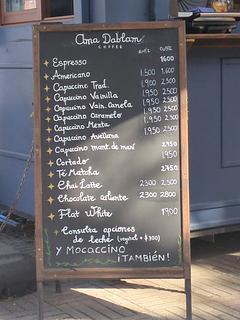 Ama Dablam
COFFEE
Espresso 1600
Americano 1.500 1.600
Capuccino Trad. 1.900 2300
Capuccino Vainilla 1.950 2500
Capuccino Vain. Canela 1.950 2500
Capuccino Caramelo 1.950 2500
Capuccino Menta 1.950 2500
Capuccino Avellana 1.950 2500
Capuccino mant. de maní 2950
Cortado 1950
Té Matcha 2950
Chai Latte 2300 2800
Chocolate caliente 2300 2800
Flat White 1900
Consulta opciones
de leche (vegetal + $300)
Y MOCACCINO
¡TAMBIÉN!